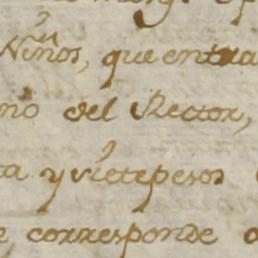 Niños, que entra
no del Rector,
ta y siete pesos
corresponde a